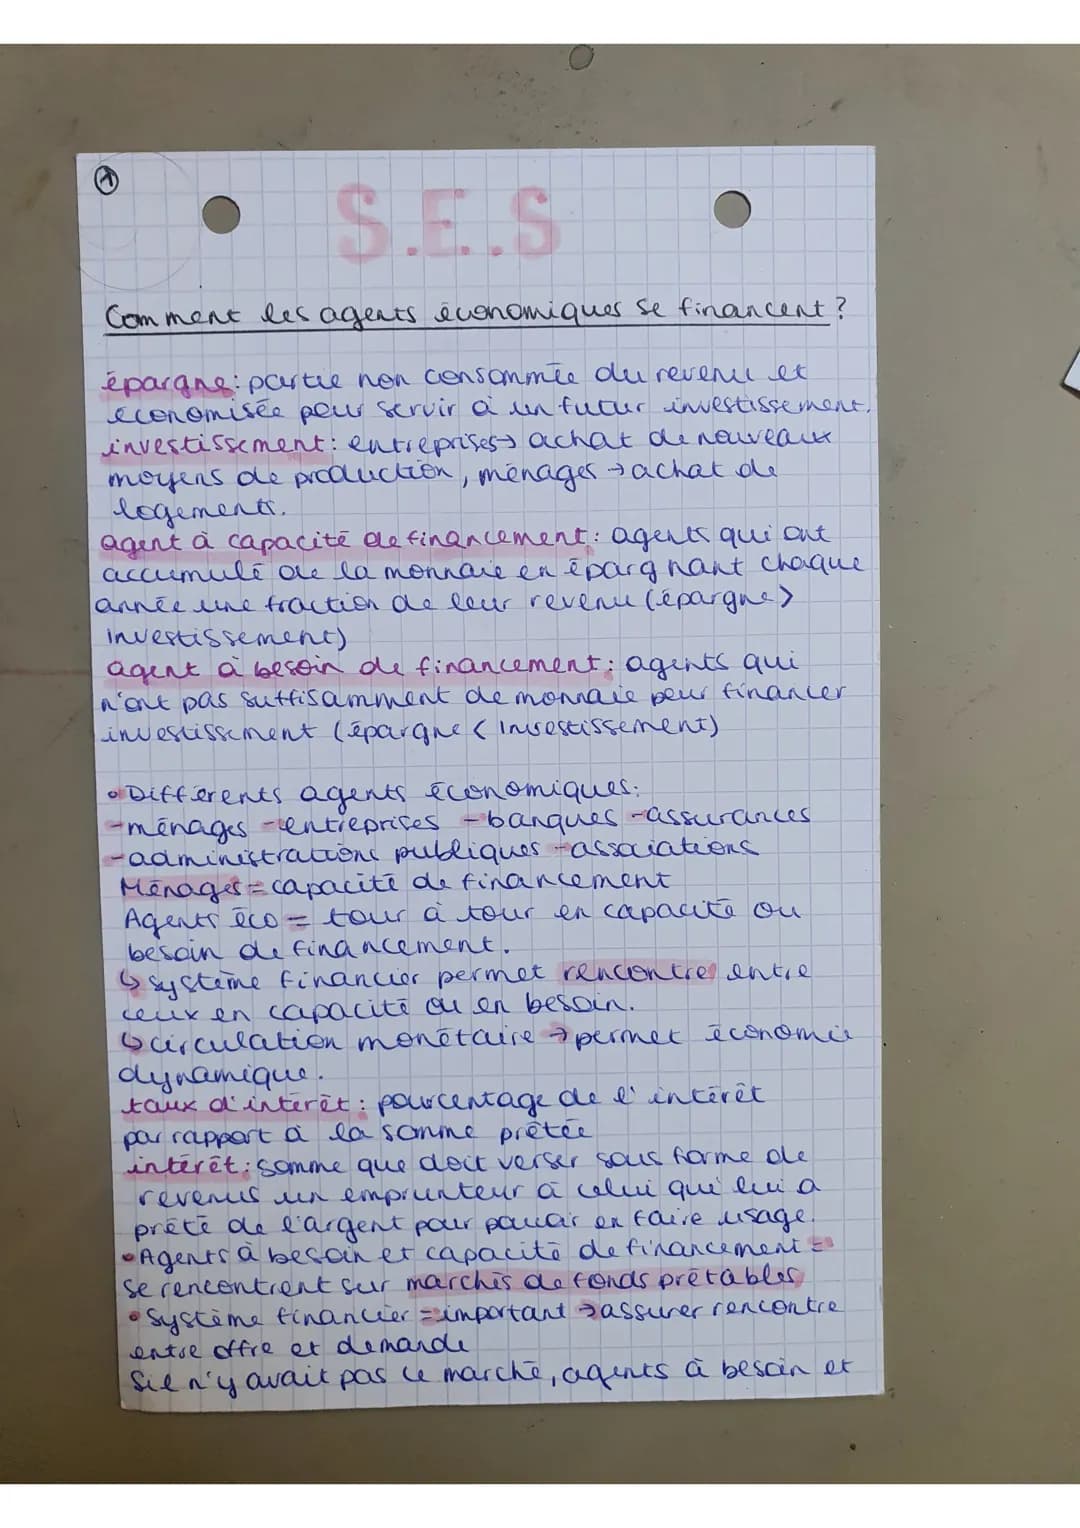 1
S.E.S
Comment les agents économiques se financent ?
épargne : partie non consommée du revenu et
économisée pour servir à un futur investissement.
investissement : entreprises → achat de nouveaux
moyens de production, ménages → achat de
logements.
agent à capacité de financement : agents qui ont
accumulé de la monnaie en épargnant chaque
année une fraction de leur revenu (épargne >
investissement)
agent à besoin de financement : agents qui
n'ont pas suffisamment de monnaie pour financer
investissement (épargne < Investissement)
• Différents agents économiques :
- ménages - entreprises - banques - assurances
- administrations publiques - associations
Ménages = capacité de financement
Agents éco = tour à tour en capacité ou
besoin de financement.
↳ système financier permet rencontre entre
ceux en capacité ou en besoin.
↳ circulation monétaire → permet économie
dynamique.
taux d'intérêt : pourcentage de l'intérêt
par rapport à la somme prêtée
intérêt : somme que doit verser sous forme de
revenus un emprunteur à celui qui lui a
prêté de l'argent pour pouvoir en faire usage.
• Agents à besoin et capacité de financement =
se rencontrent sur marchés de fonds prêtables
• Système financier = important → assurer rencontre
entre offre et demande
S'il n'y avait pas ce marché, agents à besoin et